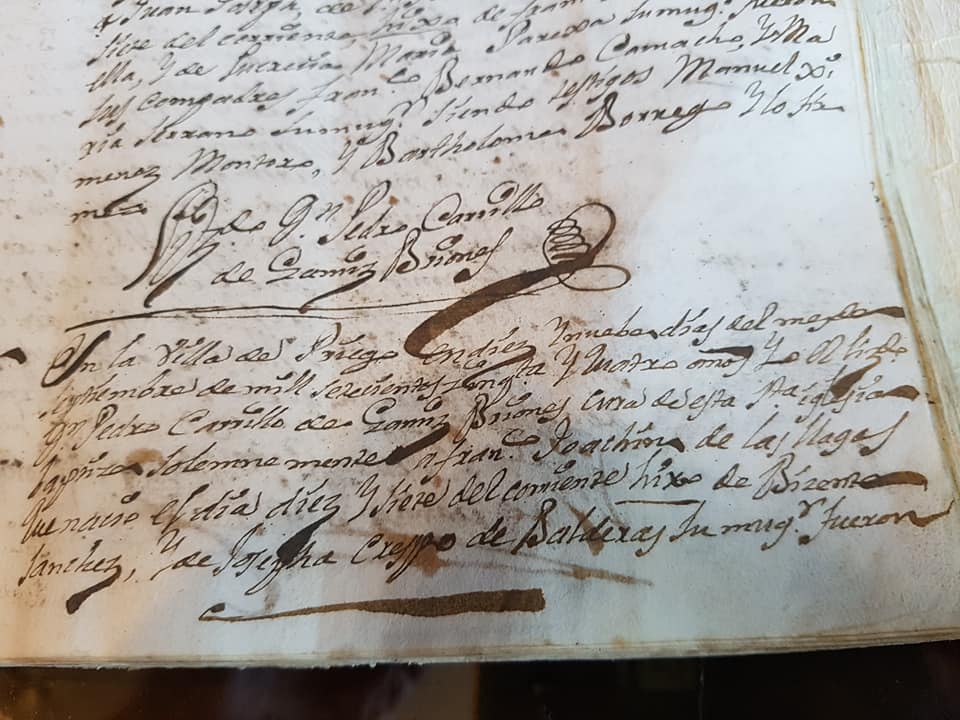 Juan Joseph, de
siete del corriente, hixo de fran
illa, y de Lucrecia Maria Parexa su mugr. fueron
sus compadres franco. Bernardo Camacho, y Ma
ria Serrano su mugr. siendo testigos Manuel Xi
menez Montoro, y Bartholome Borrego y lo fir
me
Ldo. Dn. Pedro Carrillo
de Gamiz Briones
En la Villa de Priego en diez y nuebe dias del mes de
septiembre de mill setecientos cinqta. y quatro años yo el Lizdo
Dn Pedro Carrillo de Gamiz Briones cura de esta Sta iglesia
baptize solemnemente a franco. Joachin de las llagas
que nacio el dia diez y siete del corriente hixo de Bizente
Sanchez, y de Josepha Crespo de Balderas su mugr. fueron